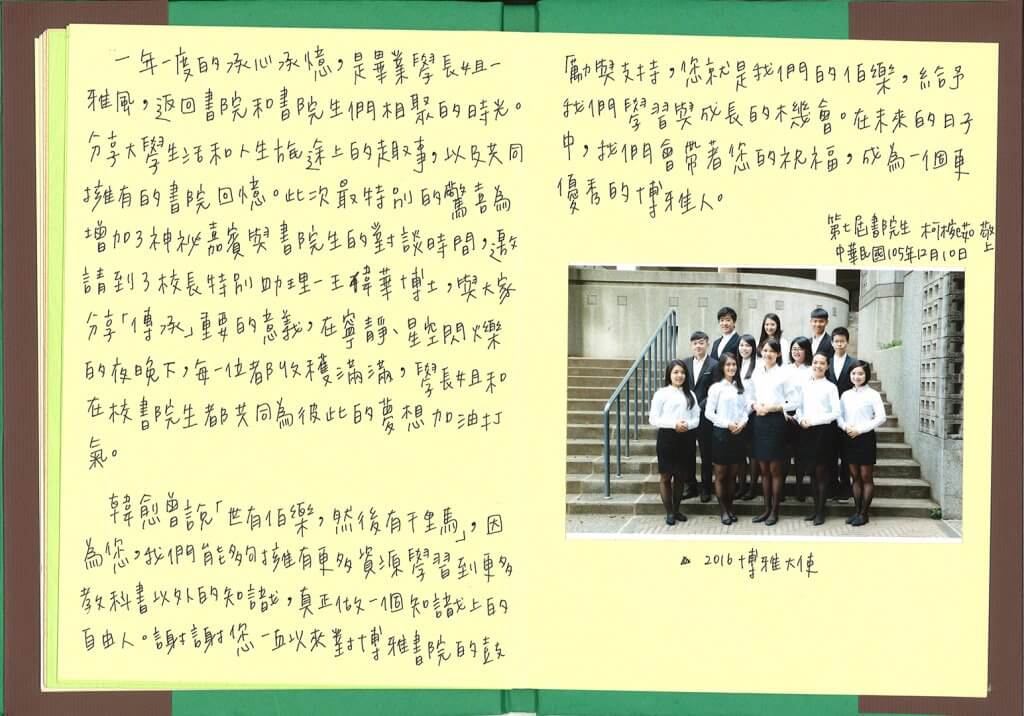 一年一度的承心承憶，是畢業學長姐一
雅風，返回書院和書院生們相聚的時光。
分享大學生活和人生旅途上的趣事，以及共同
擁有的書院回憶。此次最特別的驚喜為
增加了神祕嘉賓與書院生的對談時間，邀
請到了校長特別助理－王偉華博士，與大家
分享「傳承」重要的意義，在寧靜、星空閃爍
的夜晚下，每一位都收穫滿滿，學長姐和
在校書院生都共同為彼此的夢想加油打
氣。
韓愈曾說「世有伯樂，然後有千里馬」，因
為您，我們能夠擁有更多資源學習到更多
教科書以外的知識，真正做一個知識上的
自由人。謝謝您一直以來對博雅書院的鼓
勵與支持，您就是我們的伯樂，給予
我們學習與成長的機會。在未來的日子
中，我們會帶著您的祝福，成為一個更
優秀的博雅人。
第七屆書院生 柯 敬上
中華民國105年12月10日
▲ 2016博雅大使